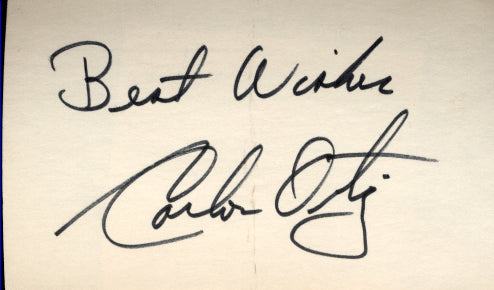 Best Wishes
Carlos Ortiz